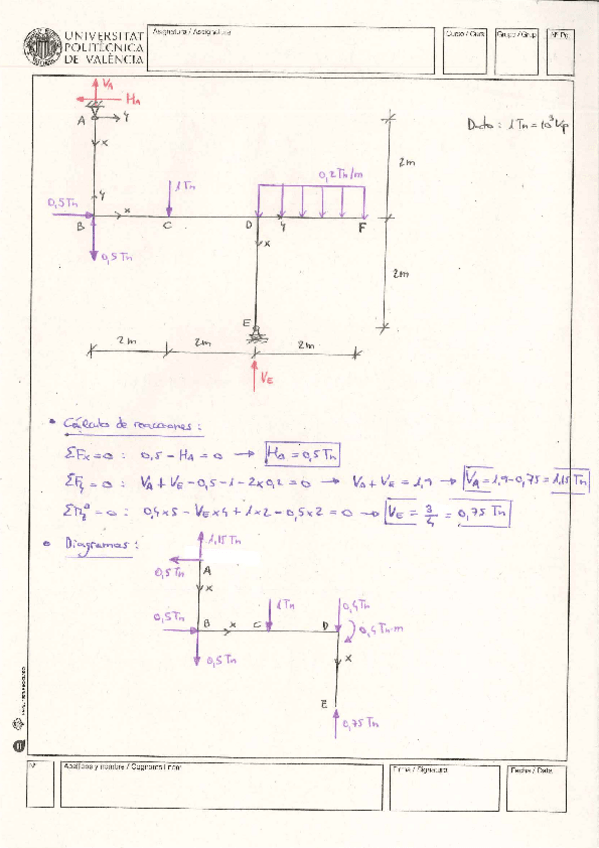 UNIVERSITAT
POLITÈCNICA
DE VALÈNCIA
Asignatura / Assignatura
Curso / Curs
Grupo / Grup
Nº Pg.
V_A
H_A
A
y
x
Dato: 1Tn = 10³ Kp
2m
y
0,5Tn
B
x
1Tn
C
D
y
0,2Tn/m
F
0,5Tn
x
2m
E
2m
2m
2m
V_E
• Cálculo de reacciones:
ΣFx = 0 : 0,5 - H_A = 0 → H_A = 0,5 Tn
ΣFy = 0 : V_A + V_E - 0,5 - 1 - 2x0,2 = 0 → V_A + V_E = 1,9 → V_A = 1,9 - 0,75 = 1,15 Tn
0,4x5 - V_E x 4 + 1x2 - 0,5x2 = 0 → V_E = 3/4 = 0,75 Tn
• Diagramas:
1,15 Tn
0,5 Tn
A
x
0,5Tn
B
x
C
1Tn
D
0,4Tn
0,4Tn·m
0,5Tn
x
E
0,75 Tn
Nº
Apellidos y nombre / Cognoms i nom
Firma / Signatura
Fecha / Data